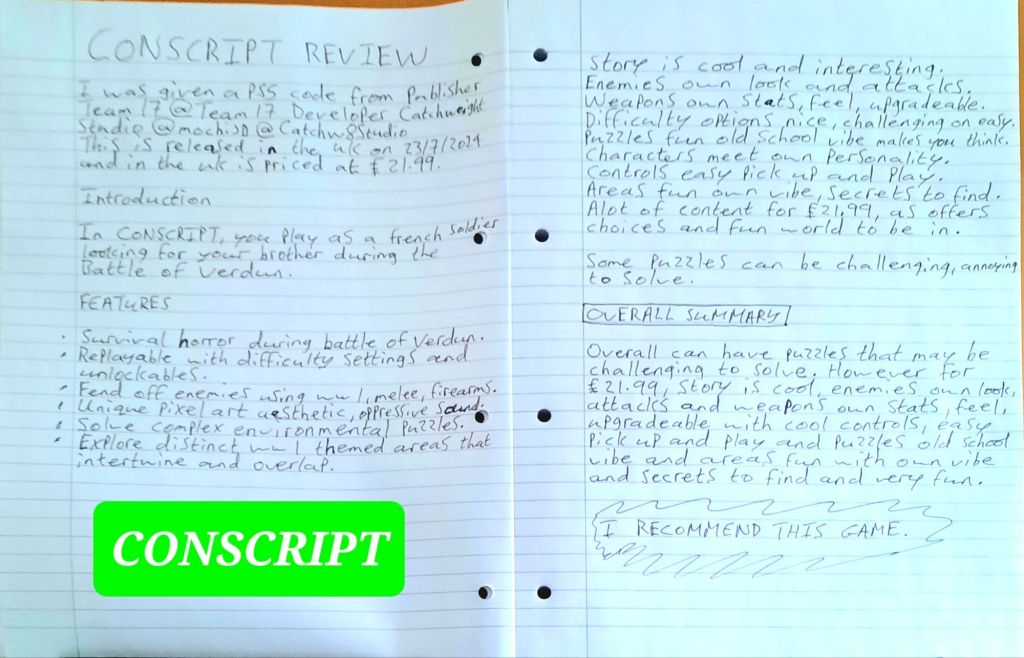 CONSCRIPT REVIEW
I was given a PS5 code from Publisher
Team 17 @Team17 Developer Catchweight
Studio @mochi3D @Catchw8Studio
This is released in the uk on 23/7/2024
and in the uk is priced at £21.99.
Introduction
In CONSCRIPT, you play as a french soldier
looking for your brother during the
Battle of Verdun.
FEATURES
• Survival horror during battle of Verdun.
• Replayable with difficulty settings and
unlockables.
• Fend off enemies using ww1, melee, firearms.
• Unique Pixel art aesthetic, oppressive sound.
• Solve complex environmental puzzles.
• Explore distinct ww1 themed areas that
intertwine and overlap.
CONSCRIPT
Story is cool and interesting.
Enemies own look and attacks.
Weapons own stats, feel, upgradeable.
Difficulty options nice, challenging on easy.
Puzzles fun old school vibe makes you think.
Characters meet own Personality.
Controls easy Pick up and Play.
Areas fun own vibe, secrets to find.
Alot of content for £21.99, as offers
choices and fun world to be in.
Some Puzzles can be challenging, annoying
to solve.
OVERALL SUMMARY
Overall can have puzzles that may be
challenging to solve. However for
£21.99, Story is cool, enemies own look,
attacks and weapons own stats, feel,
upgradeable with cool controls, easy
Pick up and Play and Puzzles old school
vibe and areas fun with own vibe
and secrets to find and very fun.
I RECOMMEND THIS GAME.